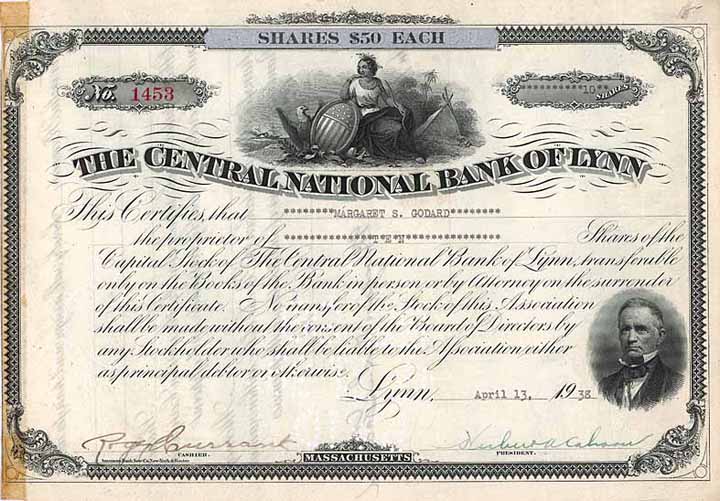 SHARES $50 EACH
No. 1453
**********10** SHARES
THE CENTRAL NATIONAL BANK OF LYNN
This Certifies, that ********MARGARET S. GODARD********
the proprietor of **************TEN************** Shares of the
Capital Stock of The Central National Bank of Lynn, transferable
only on the Books of the Bank in person or by Attorney on the surrender
of this Certificate. No transfer of the Stock of this Association
shall be made without the consent of the Board of Directors by
any Stockholder who shall be liable to the Association either
as principal debtor or otherwise.
Lynn, April 13, 1938
CASHIER.
PRESIDENT.
MASSACHUSETTS